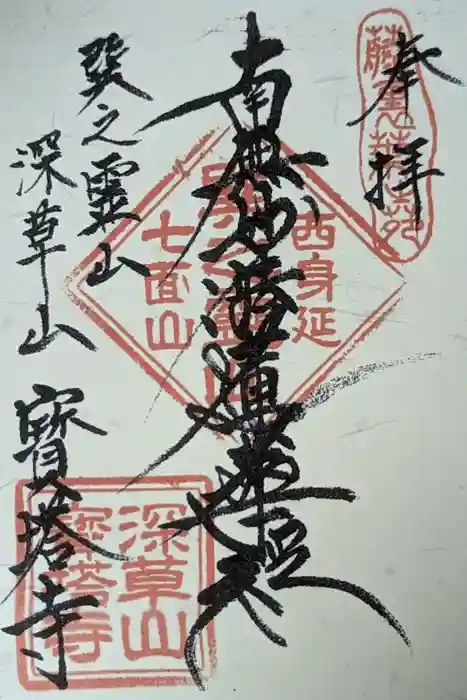 奉拝
南無妙法蓮華経
巽之靈山
深草山
寶塔寺
西身延
七面山
深草山
寶塔寺